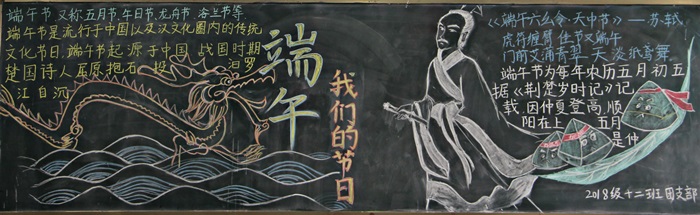 端午节,又称:五月节、午日节、龙舟节、浴兰节等
端午节是流行于中国以及汉文化圈内的传统
文化节日,端午节起源于中国,战国时期
楚国诗人屈原抱石投汨罗
江自沉
端午
我们的节日
《端午六幺令·天中节》——苏轼
虎符缠臂,佳节又端午
门前艾蒲青翠,天淡纸鸢舞
端午节为每年农历五月初五
据《荆楚岁时记》记
载,因仲夏登高,顺
阳在上,五月
是仲
2018级十二班团支部